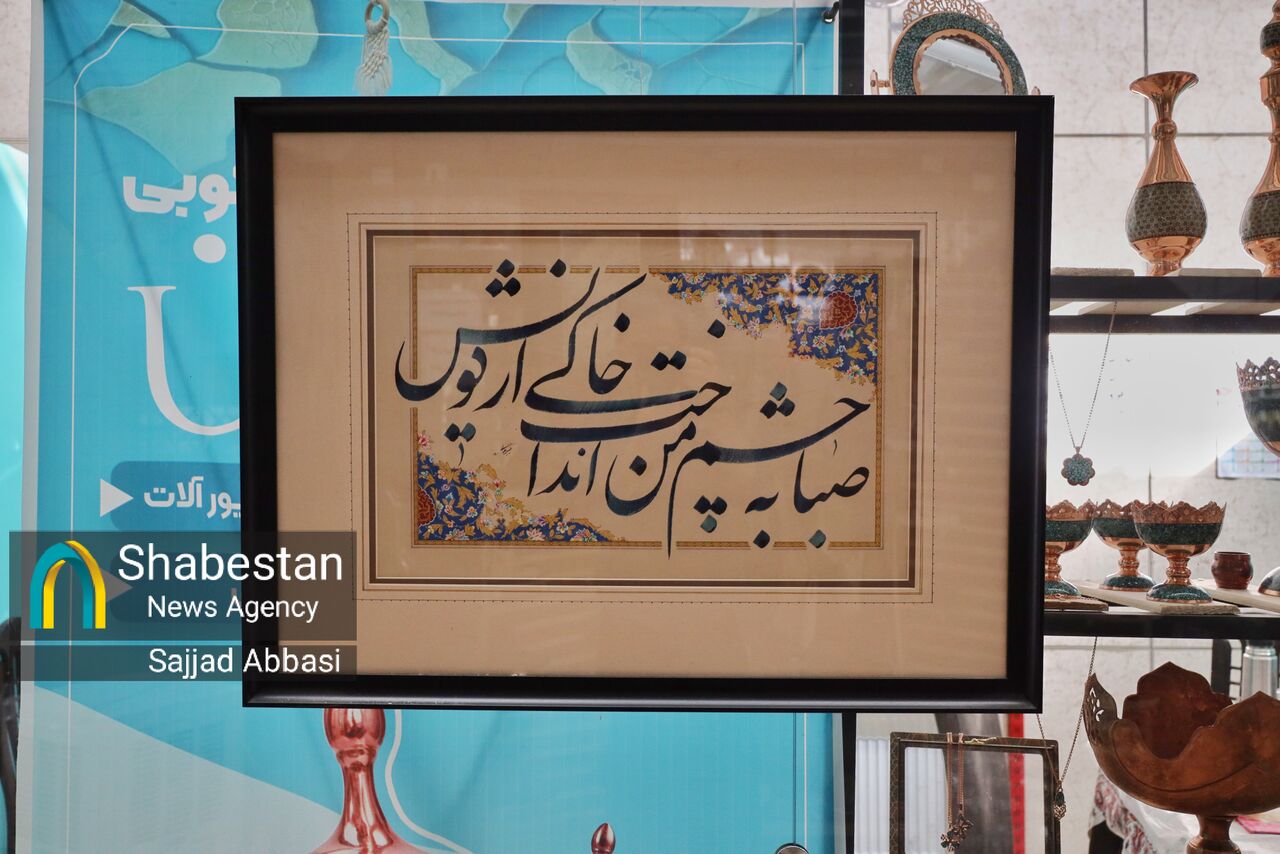 صبا به چشم من انداخت خاکی از کویش
یور آلات
Shabestan
News Agency
Sajjad Abbasi